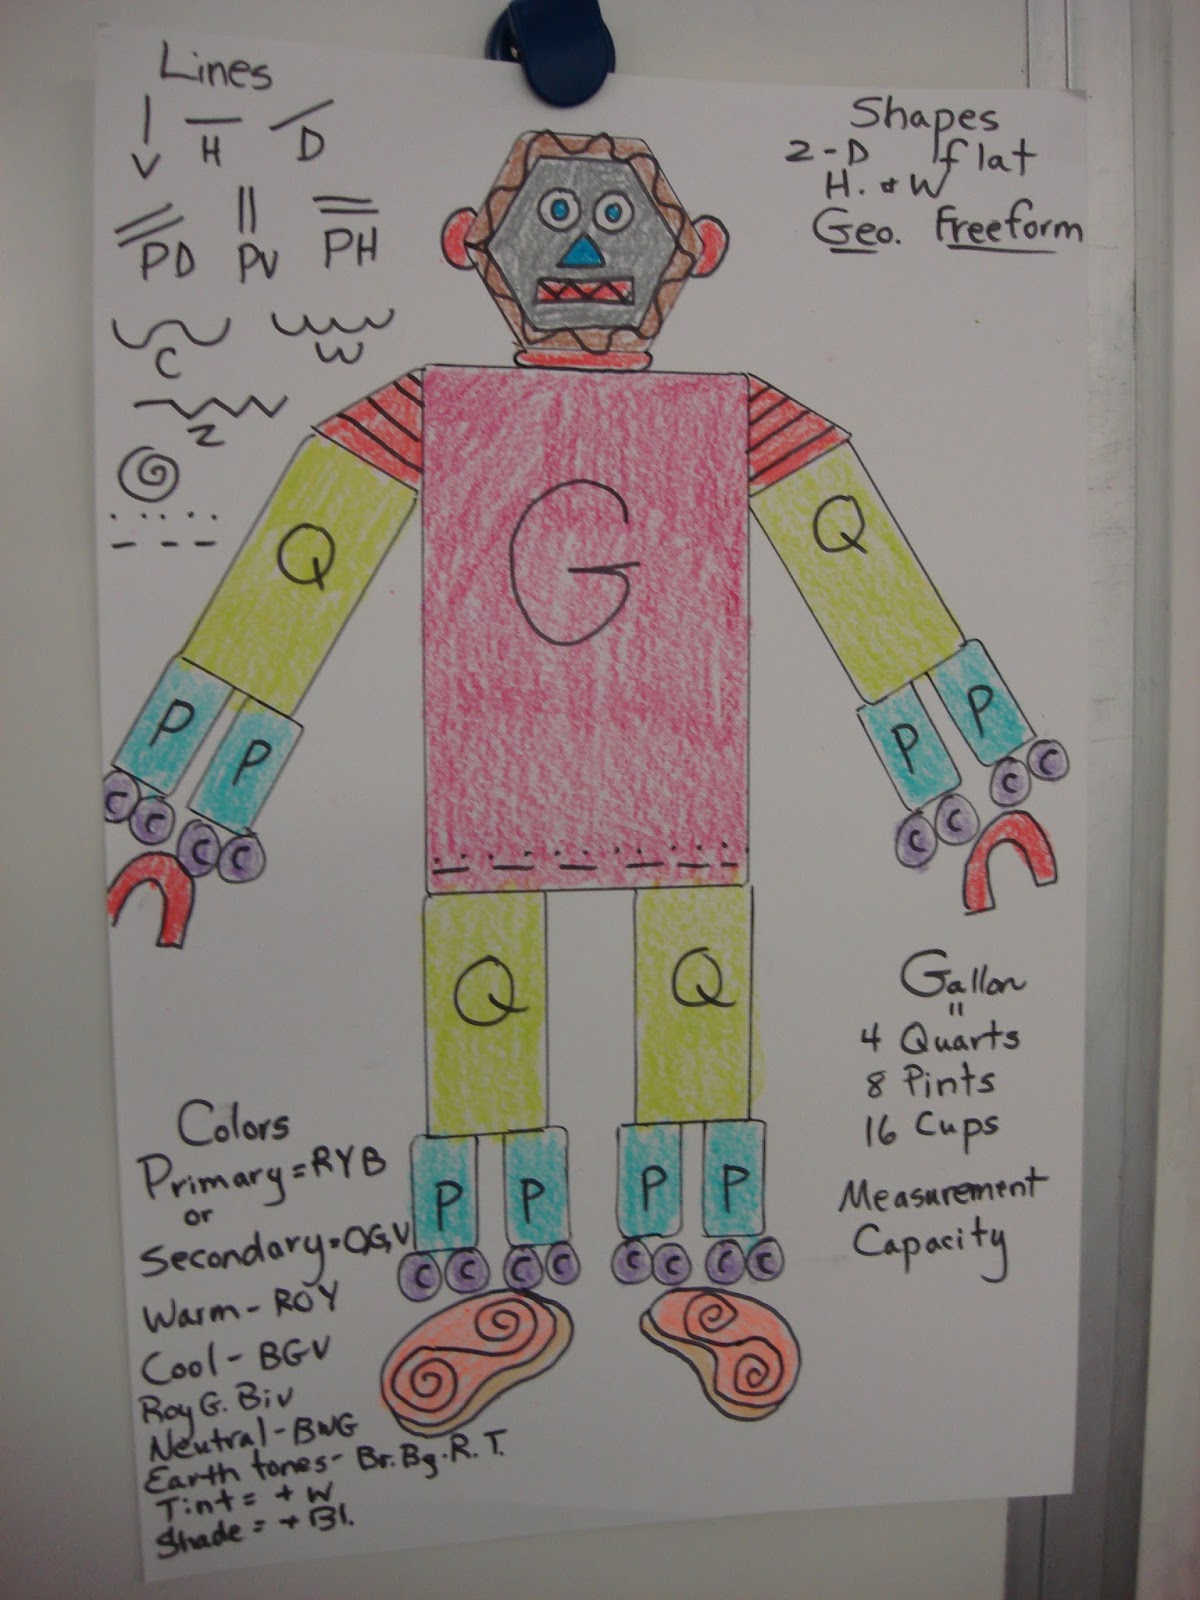 Lines
V H D
PD PV PH
C W
Z
Shapes
2-D flat
H. & W
Geo. Freeform
G
Q Q
P P P P
C C C C C C C C
Q Q
P P P P
C C C C C C C C
Gallon
=
4 Quarts
8 Pints
16 Cups
Measurement
Capacity
Colors
Primary = RYB
or
Secondary = OGV
Warm - ROY
Cool - BGV
Roy G. Biv
Neutral - BWG
Earth tones - Br. Bg. R. T.
Tint = + W
Shade = + Bl.